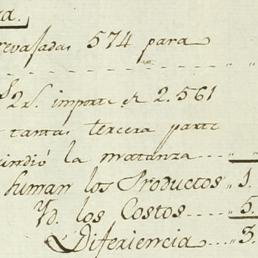 a.
revasadas 574 para
2 rs. importe de 2.561
tanta, tercera parte
rindió la matanza ....
human los Productos „ 1.
Yd. los Costos ...... „ 5.
Diferiencia .... „ 3.